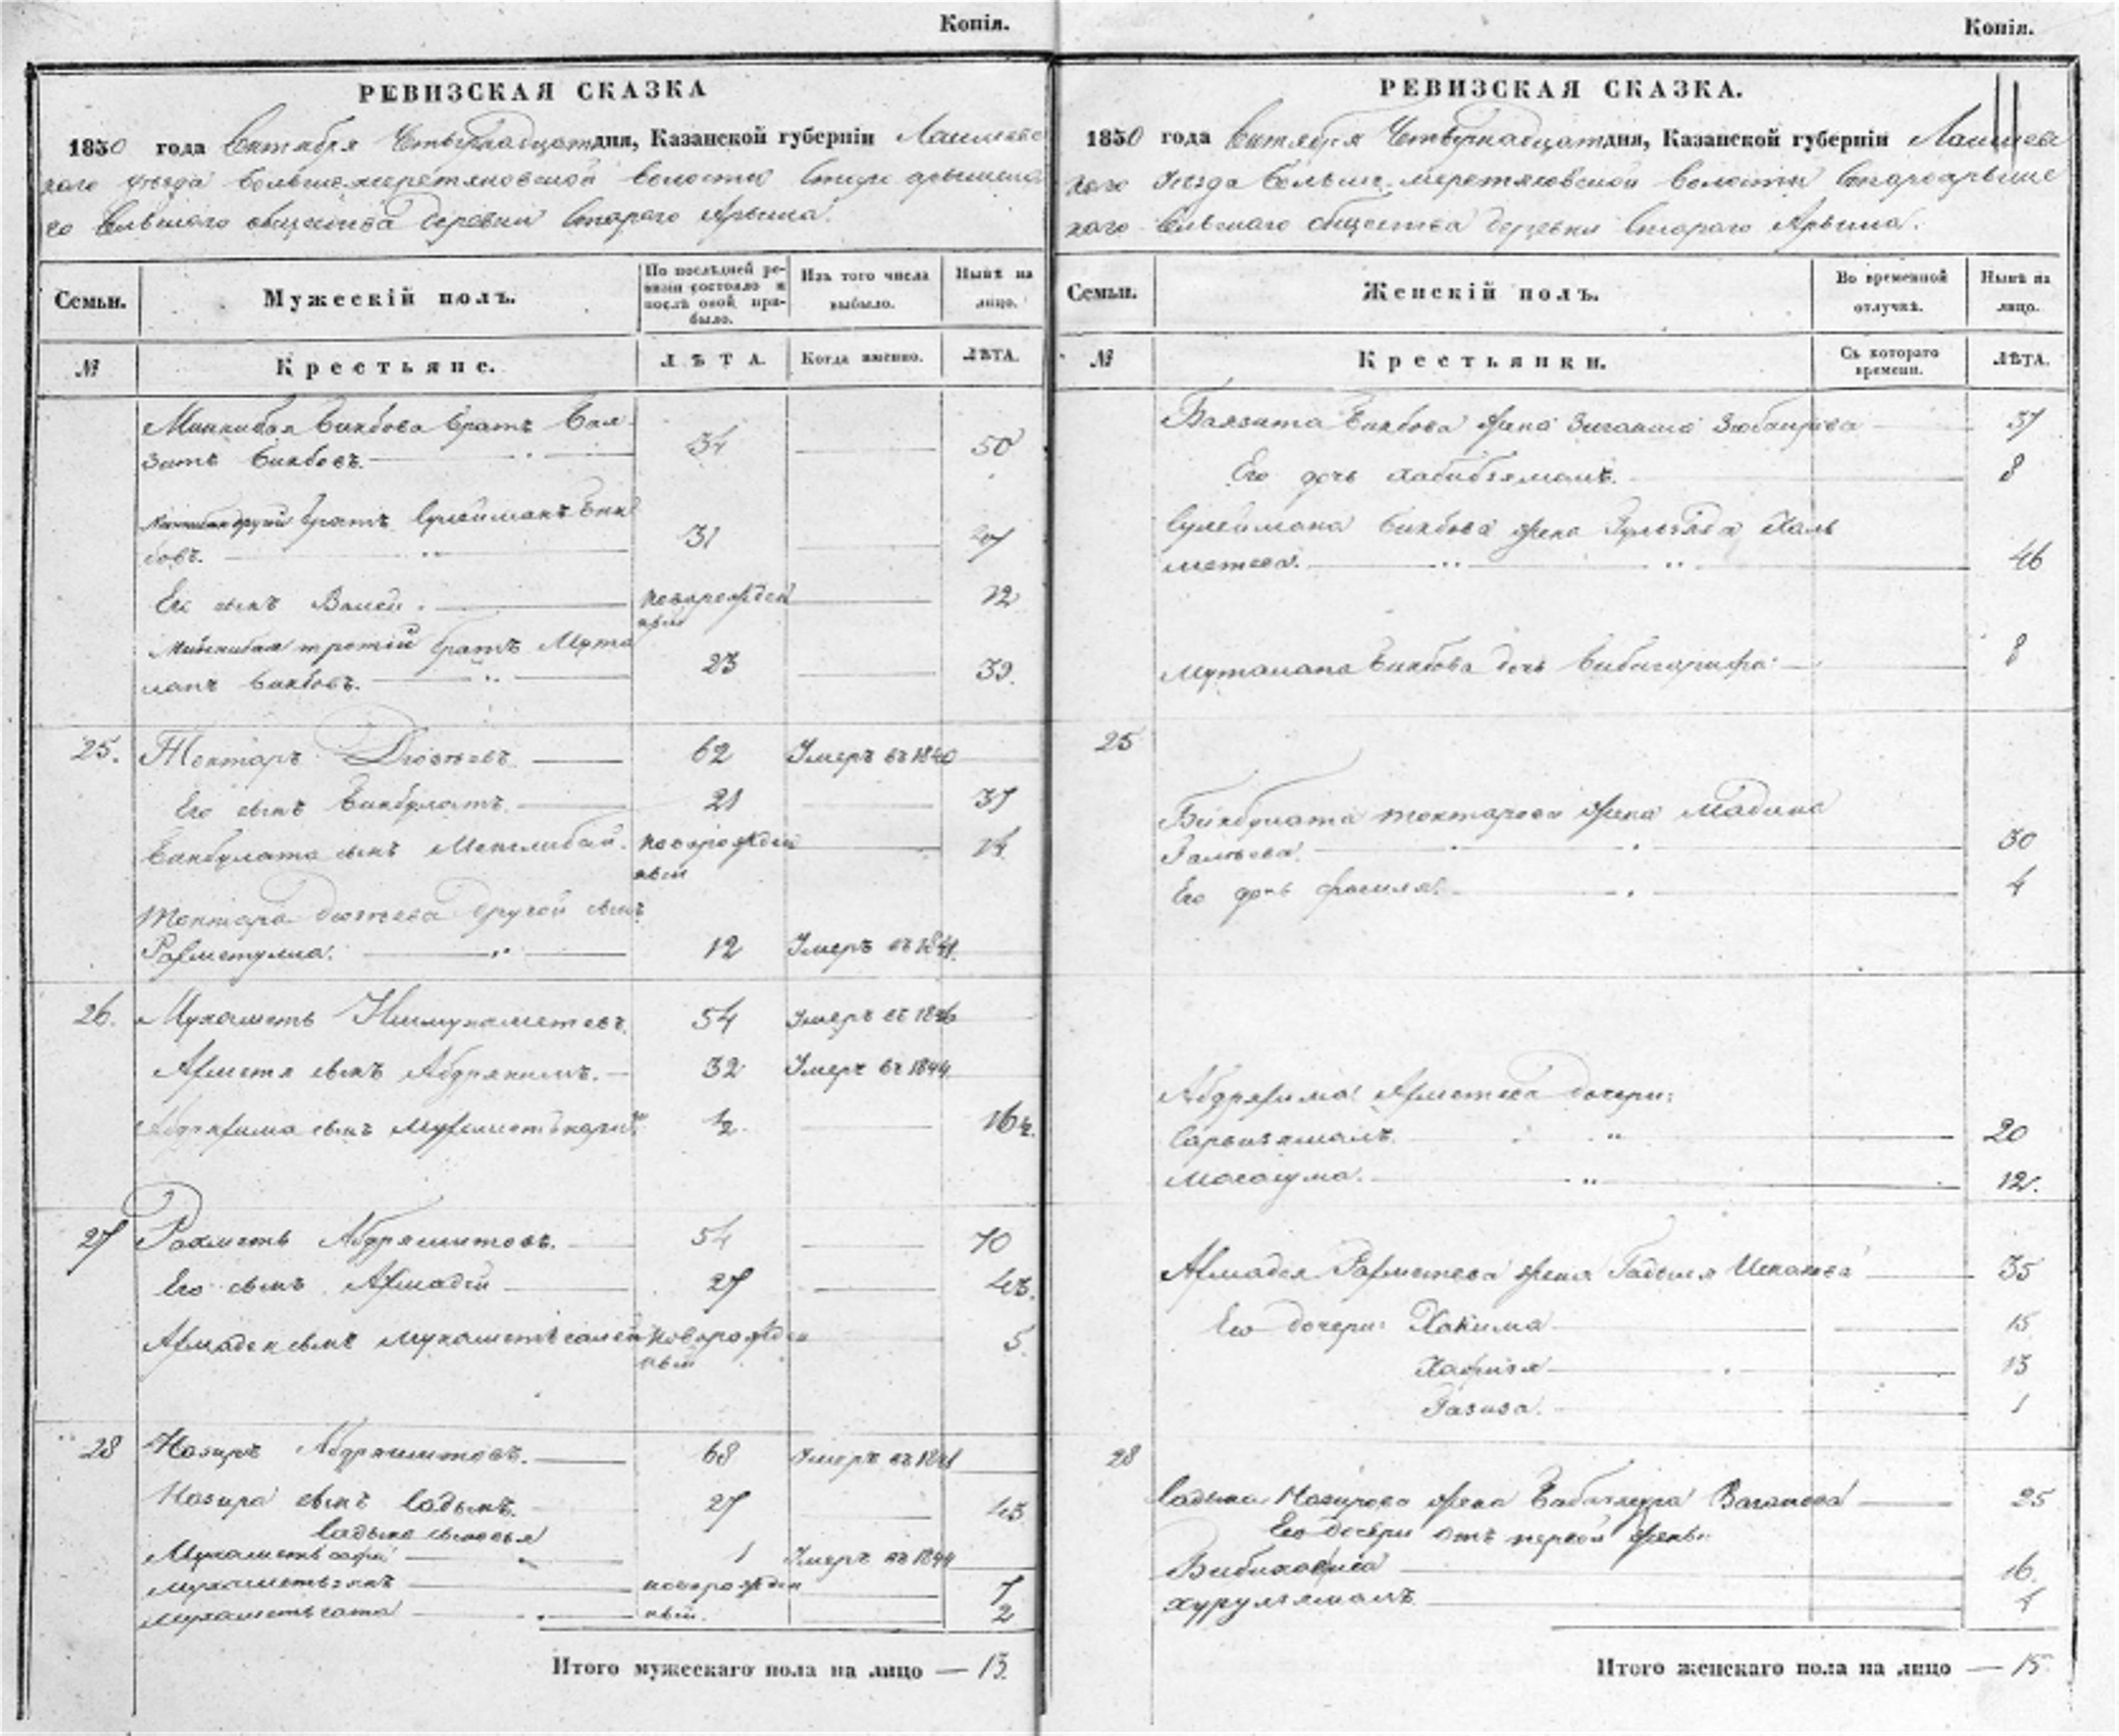 Копія.
РЕВИЗСКАЯ СКАЗКА
1850 года Октября Четырнадцат дня, Казанской губерніи Лаишевс
каго уезда Большемеретяковской волости Старо арышска
го сельскаго общества деревни Стараго Арыша.
Семьи.
Мужескій полъ.
По послѣдней ре-
визіи состояло и
послѣ оной при-
было.
Изъ того числа
выбыло.
Нынѣ на
лицо.
№
Крестьяне.
ЛѢТА.
Когда именно.
ЛѢТА.
Миннибая Бикбова братъ Бая 34 50
зитъ Бикбовъ.
другой братъ Сулейманъ Бик 31 47
бовъ.
Его сынъ Валей. новорожден 12
ный
третій братъ Мута 23 39.
лапъ Бикбовъ.
25. Токтаръ 62 Умеръ въ 1840
Его сынъ Бикбулатъ. 21 37
Бикбулата сынъ Менглибай. новорожден 14
ный
Токтара другой сынъ
Рахметулла. 12 Умеръ въ 1841.
26. Мухаметь 54 Умеръ въ 1846
Ахметя сынъ Абдряхимъ. 32 Умеръ въ 1844
Абдряхима сынъ ½ 16½.
27 Рахметь Абдряшитовъ. 54 70
Его сынъ Ахмадей 27 43.
Ахмадея сынъ Мухаметьсалей новорожден 5.
ный
28 Назиръ Абдряшитовъ. 68 Умеръ въ 1841
Назира сынъ Садыкъ. 27 43
Садыка сыновья
Мухаметь 1 Умеръ въ 1844
Мухаметь новорожден 7
Мухаметьгата ный. 2
Итого мужескаго пола на лицо — 13.
Копія.
РЕВИЗСКАЯ СКАЗКА.
1850 года Октября Четырнадцат дня, Казанской губерніи Лаишевс
каго уезда Больше меретяковской волости Староарышс
каго сельскаго общества деревни Стараго Арыша.
Семьи.
Женскій полъ.
Во временной
отлучкѣ.
Нынѣ на
лицо.
№
Крестьянки.
Съ котораго
времени.
ЛѢТА.
Баязита Бикбова жена Зюбаирова 37
Его дочь Хабибзямалъ. 8
Сулеймана Бикбова жена Халь
метева. 46
Муталапа Бикбова дочь Бибигарифа. 8
25
Бикбулата Токтарова жена Мадина
30
Его дочь 4
Абдряхима Ахметева дочери:
Сарвизямалъ. 20
12.
Ахмадея Рахметева жена Исхакова 35
Его дочери: Хакима 15
Хафиза 13
Газиза. 1
28
Садыка Назирова жена 25
Его дочери отъ первой жены:
16.
4
Итого женскаго пола на лицо — 15